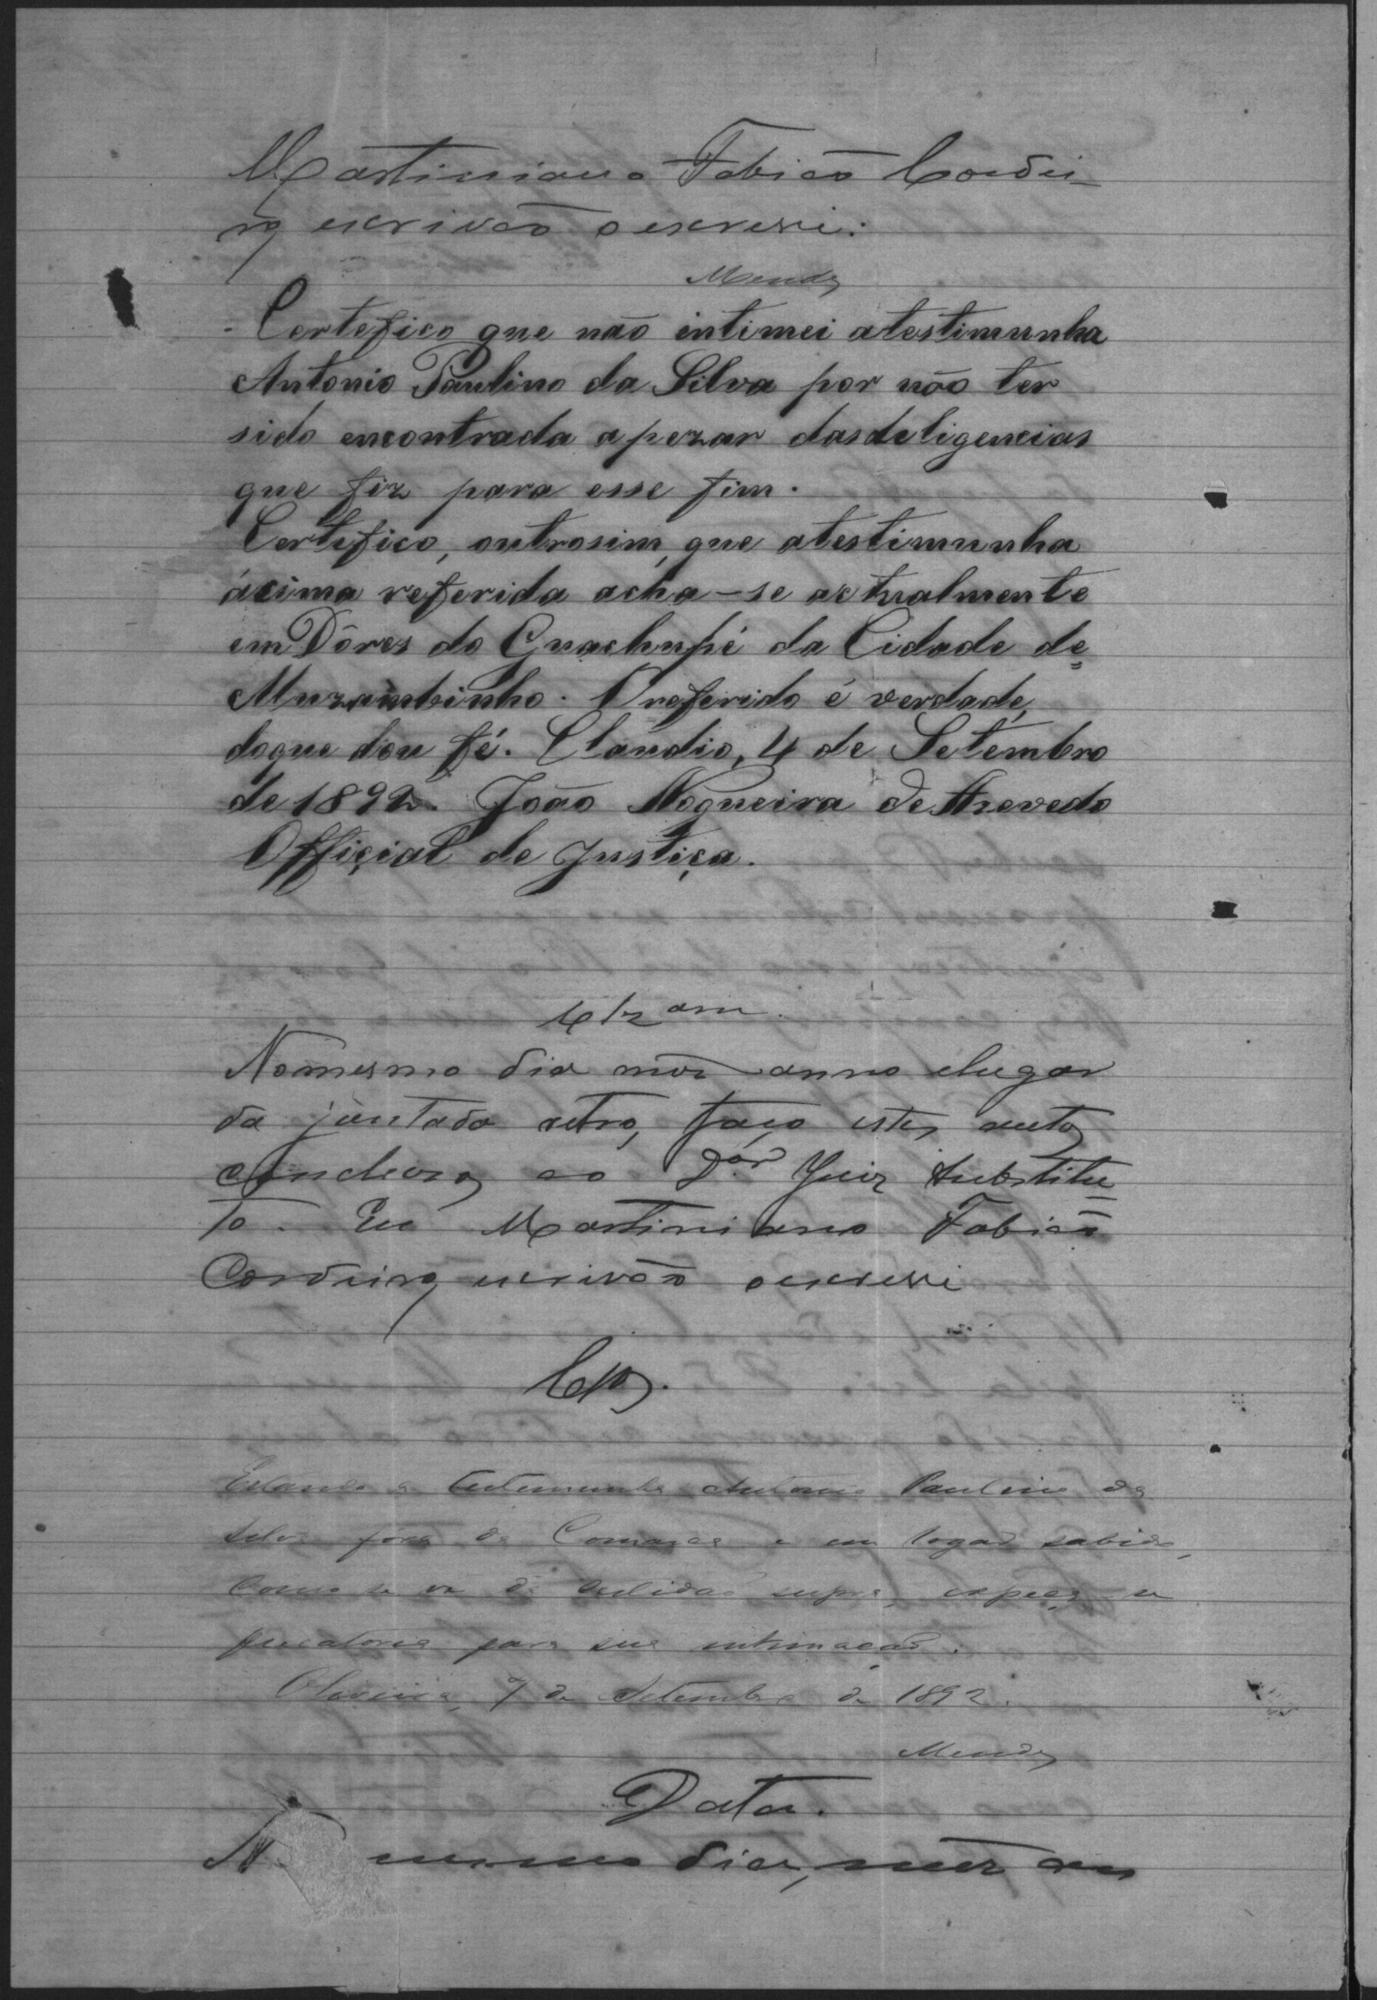 Martiniano Fabião Cordei-
ro, escrivão o escrevi.
Mendes
Certefico que não intimei atestimunha
Antonio Paulino da Silva por não ter
sido encontrada apezar dasdeligencias
que fiz para esse fim.
Certefico, outrosim, que atestimunha
ácima referida acha-se actualmente
em Dôres do Guachupé da Cidade de
Muzambinho. Oreferido é verdade,
doque dou fé. Claudio, 4 de Setembro
de 1892. João Nogueira de Azevedo
Official de Justiça.
Nomesmo dia mez anno elugar
da juntada retro, faço estes autos
conclusos ao Dor Juiz Substitu
to. Eu Martiniano Fabião
Cordeiro, escrivão o escrevi
Clsos.
Estando a testemunha Antonio Paulino da
Silva fora da Comarca e em logar sabido,
como se vê da certidão supra, expeça-se
precatoria para sua intimação.
Oliveira, 7 de Setembro de 1892.
Mendes
Data.
N mesmo dia, mez an